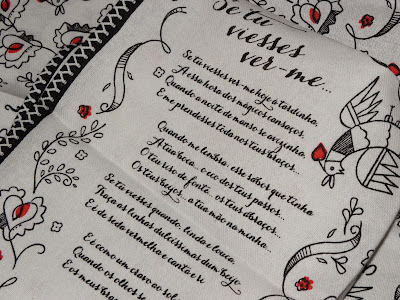 Se tu
viesses
ver-me...
Se tu viesses ver-me hoje à tardinha,
A essa hora dos mágicos cansaços,
Quando a noite de manso se avizinha,
E me prendesses toda nos teus braços...
Quando me lembra: esse sabor que tinha
A tua boca... o eco dos teus passos...
O teu riso de fonte... os teus abraços...
Os teus beijos... a tua mão na minha...
Se tu viesses quando, linda e louca,
Traça as linhas dulcíssimas dum beijo
E é de seda vermelha e canta e ri
E é como um cravo ao sol
Quando os olhos se
E os meus braços